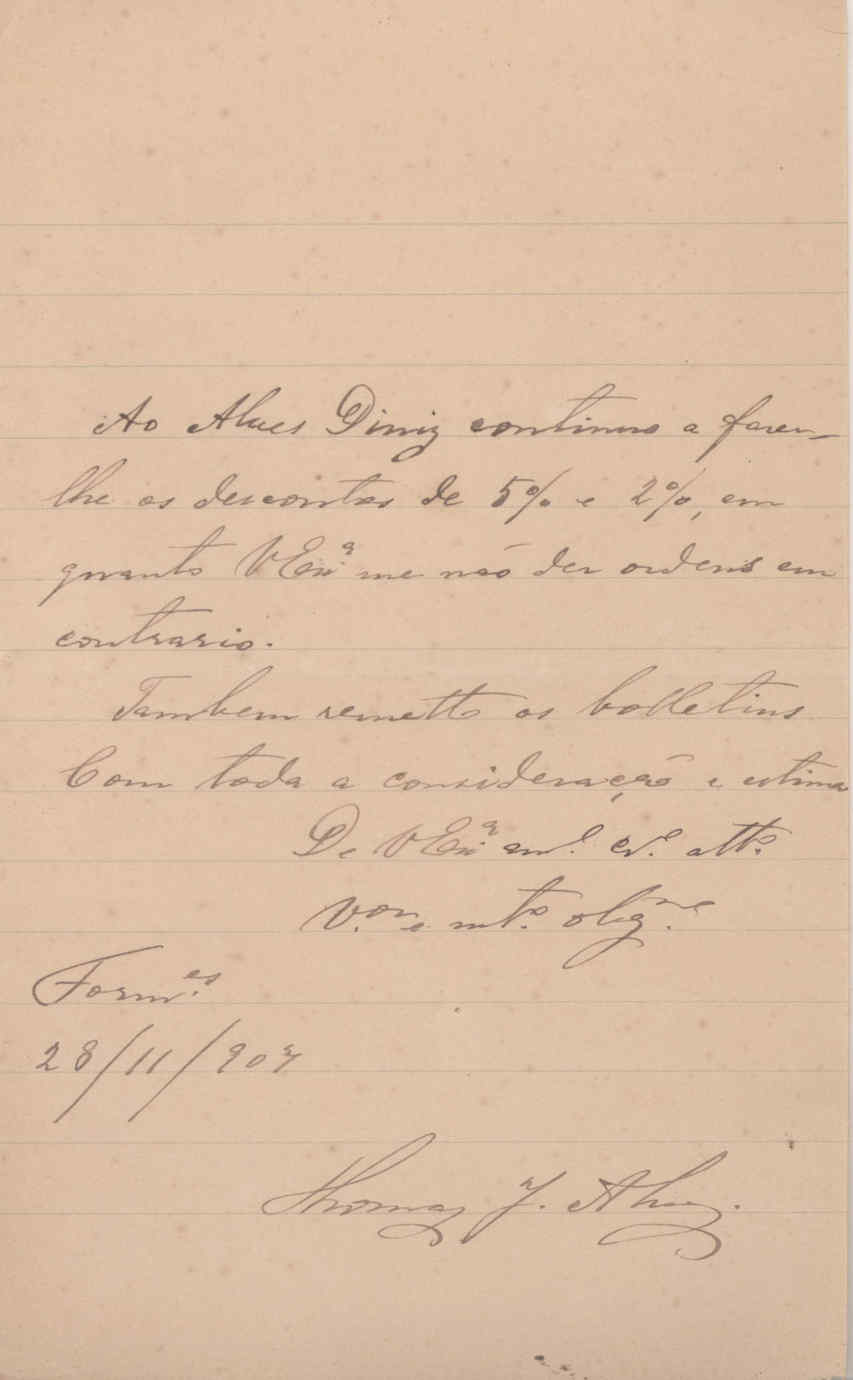 Ao Alves Diniz continuo a fazer-
lhe os descontos de 5% e 2%, em
quanto V Exª me não der ordens em
contrario.
Tambem remetto os bolletins
Com toda a consideração e estima
De V Exª am.º cr.º att.º
V.or e mt.º obg.mo
Form.es
28/11/907
Thomaz J. Alves.